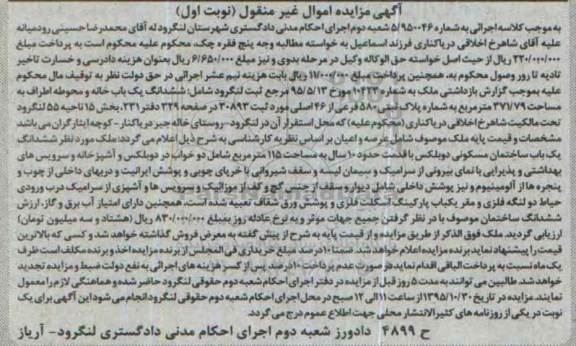 آگهی مزایده اموال غیر منقول (نوبت اول)
به موجب کلاسه اجرائی به شماره ۵/۹۵۰۰۴۶ شعبه دوم اجرای احکام مدنی دادگستری شهرستان لنگرود له آقای محمدرضا حسینی رودمیانه
علیه آقای شاهرخ اخلاقی دریاکناری فرزند اسماعیل به خواسته مطالبه وجه پنج فقره چک، محکوم علیه محکوم است به پرداخت مبلغ
۲۲۰/۰۰۰/۰۰۰ ریال از حیث اصل خواسته حق الوکاله وکیل در مرحله بدوی و نیز مبلغ ۶/۶۵۰/۰۰۰ ریال بعنوان هزینه دادرسی و خسارت تاخیر
تادیه تا روز وصول محکوم به، همچنین پرداخت مبلغ ۱۷/۰۰۰/۰۰۰ ریال بابت هزینه نیم عشر اجرائی در حق دولت نظر به توقیف مال محکوم
علیه بموجب گزارش بازداشتی ملک به شماره ۱۰۴۲۳ مورخ ۹۵/۵/۱۳ مرجع ثبت لنگرود شامل: ششدانگ یک باب خانه و محوطه اطراف به
مساحت ۳۷۱/۷۹ مترمربع به شماره پلاک ثبتی ۵۸۰ فرعی از ۴۶ اصلی مورد ثبت ۳۰۸۹۳ در صفحه ۳۲۹ دفتر ۲۳۱، بخش ۱۵ ناحیه ۵۵ لنگرود
تحت مالکیت شاهرخ اخلاقی دریاکناری (محکوم علیه) که محل استقرار آن در لنگرود-روستای خاله جیر دریاکنار- کوچه ایثارگران می باشد
مشخصات و قیمت پایه ملک موصوف شامل عرصه و اعیان بر اساس نظریه کارشناسی به شرح ذیل اعلام می گردد: ملک مورد نظر ششدانگ
یک باب ساختمان مسکونی دوبلکس با قدمت حدود ۱۰ سال به مساحت ۱۱۵ مترمربع شامل دو خواب در دوبلکس و آشپزخانه و سرویس های
بهداشتی و پذیرایی با نمای بیرونی از سرامیک و سیمان لیسه و سقف شیروانی با خرپای چوبی و پوشش ایرانیت و دربهای داخلی از چوب و
پنجره ها از آلومینیوم و نیز پوشش داخلی شامل دیوار و سقف از جنس گچ و کف از موزائیک و سرویس ها و آشپزی از سرامیک درب ورودی
حیاط دو لنگه فلزی و مقر یکباب پارکینگ اسکلت فلزی و پوشش ورق شفاف تعبیه شده است، همچنین دارای امتیاز آب برق و گاز، ارزش
ششدانگ ساختمان موصوف با در نظر گرفتن جمیع جهات موثر و به نرخ عادله روز بمبلغ ۸۳۰/۰۰۰/۰۰۰ ریال (هشتاد و سه میلیون تومان)
ارزیابی گردید. ملک فوق الذکر از طریق مزایده و از قیمت پایه به شرح از پیش گفته به معرض فروش گذاشته خواهد شد و کسی که بالاترین
قیمت را پیشنهاد نماید برنده مزایده اعلام خواهد شد. ضمنا ۱۰ درصد مبلغ خریداری فی المجلس از برنده مزایده اخذ و برنده مکلف است ظرف
یک ماه نسبت به پرداخت الباقی اقدام نماید در صورت عدم پرداخت ۱۰ درصد پس از کسر هزینه های اجرائی به نفع دولت ضبط و مزایده تجدید
خواهد شد. طالبین می توانند به مدت ۵ روز قبل از مزایده در دفتر اجرای احکام شعبه دوم حقوقی لنگرود حاضر شده و هماهنگی لازم را معمول
نمایند. مزایده در تاریخ ۱۳۹۵/۱۰/۳۰ از ساعت ۱۱ الی ۱۲ صبح در محل اجرای احکام شعبه دوم حقوقی لنگرود انجام می شود این آگهی برای یک
نوبت در یکی از روزنامه های کثیرالانتشار محلی جهت اطلاع عموم درج می گردد.
ح ۴۸۹۹ دادورز شعبه دوم اجرای احکام مدنی دادگستری لنگرود- آریاز